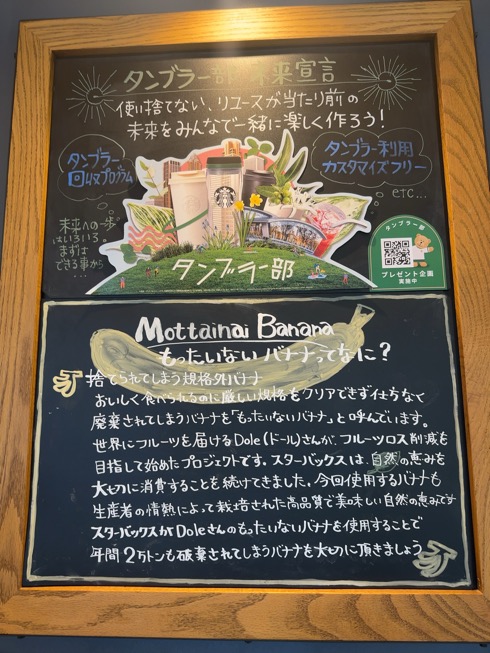 タンブラー部 未来宣言
使い捨てない、リユースが当たり前の
未来をみんなで一緒に楽しく作ろう!
タンブラー
回収プログラム
タンブラー利用
カスタマイズフリー
etc...
未来への一歩
はいろいろ。
まずは
できる事から...
タンブラー部
タンブラー部
プレゼント企画
実施中
Mottainai Banana
もったいないバナナってなに?
捨てられてしまう規格外バナナ
おいしく食べられるのに厳しい規格をクリアできず仕方なく
廃棄されてしまうバナナを「もったいないバナナ」と呼んでいます。
世界にフルーツを届けるDole(ドール)さんが、フルーツロス削減を
目指して始めたプロジェクトです。スターバックスは、自然の恵みを
大切に消費することを続けてきました。今回使用するバナナも
生産者の情熱によって栽培された高品質で美味しい自然の恵みです
スターバックスがDoleさんのもったいないバナナを使用することで
年間2万トンも破棄されてしまうバナナを大切に頂きましょう